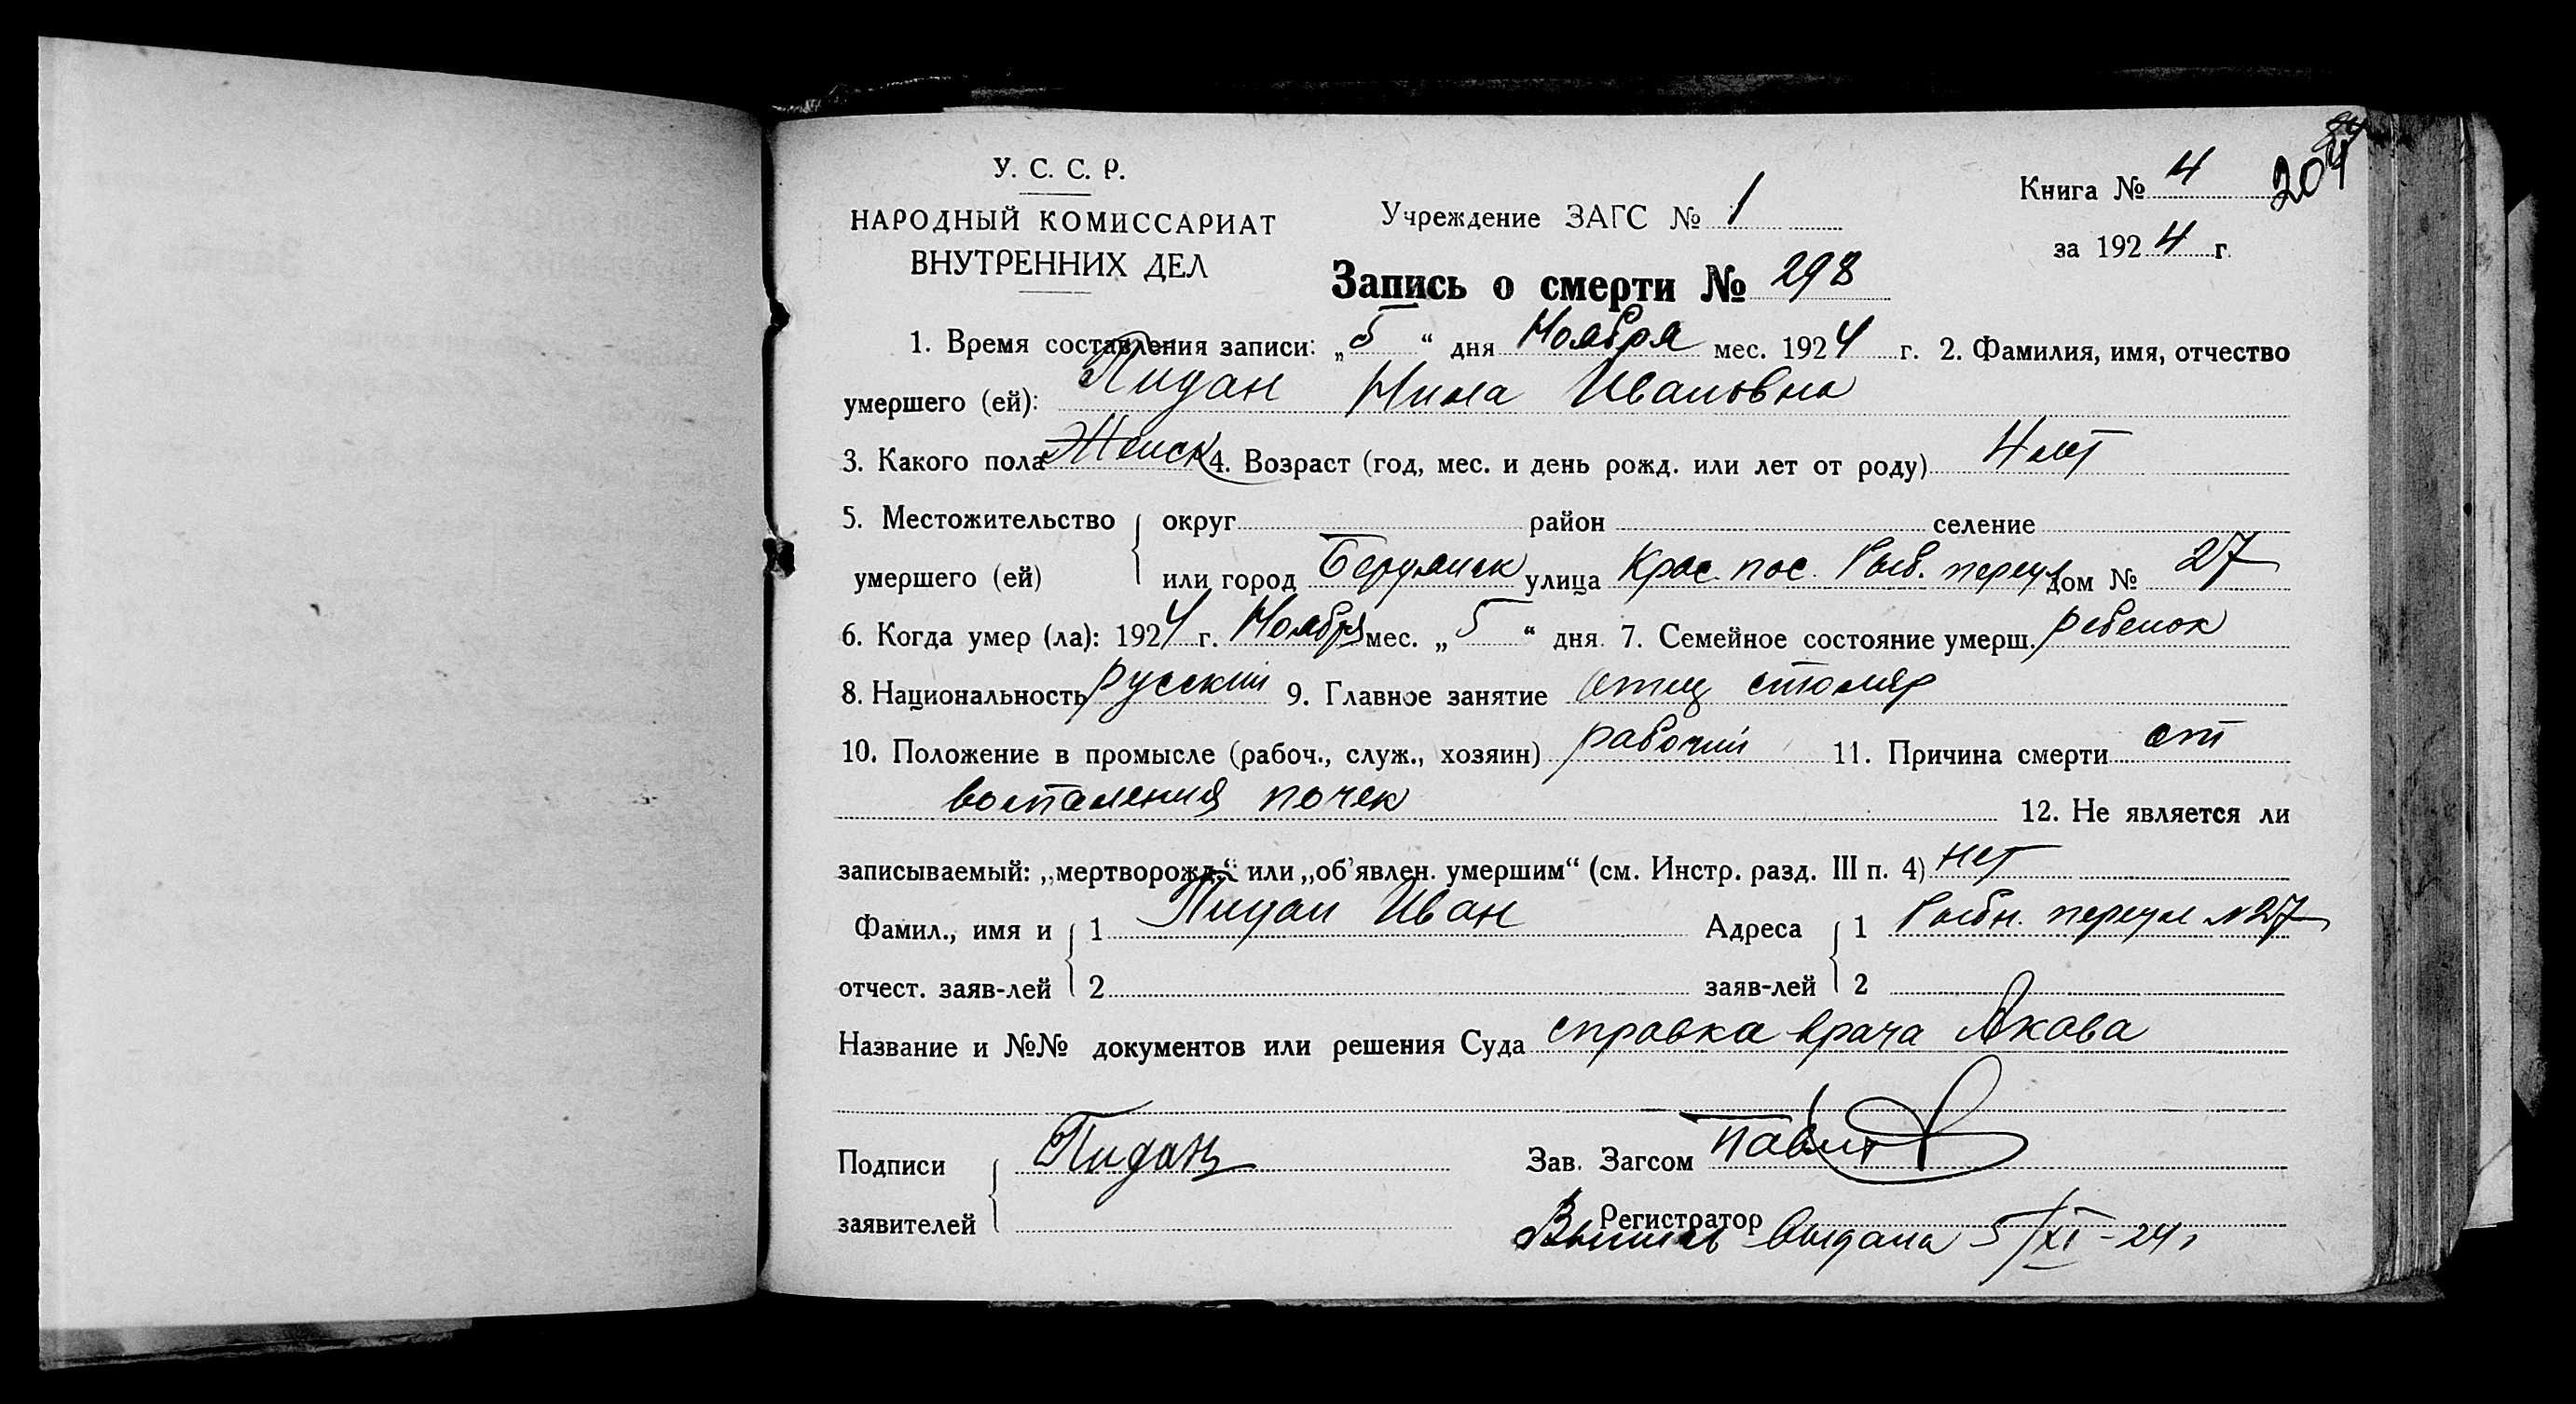 У. С. С. Р.
НАРОДНЫЙ КОМИССАРИАТ
ВНУТРЕННИХ ДЕЛ
Учреждение ЗАГС № 1
Книга № 4
204
за 1924 г.
Запись о смерти № 298
1. Время составления записи: „5“ дня Ноября мес. 1924 г. 2. Фамилия, имя, отчество
умершего (ей): Пидан Нина Ивановна
3. Какого пола Женск 4. Возраст (год, мес. и день рожд. или лет от роду) 4 лет
5. Местожительство { округ район селение
умершего (ей) или город Бердянск улица Крас. пос. Рыб. переул дом № 27
6. Когда умер (ла): 1924 г. Ноября мес. „5“ дня 7. Семейное состояние умерш. ребенок
8. Национальность русский 9. Главное занятие отец столяр
10. Положение в промысле (рабоч., служ., хозяин) рабочий 11. Причина смерти от
воспаления почек 12. Не является ли
записываемый: „мертворожд.“ или „об'явлен. умершим“ (см. Инстр. разд. III п. 4) нет
Фамил., имя и { 1 Пидан Иван Адреса { 1 Рыбн. переул №27
отчест. заяв-лей 2 заяв-лей 2
Название и №№ документов или решения Суда справка врача Якова
Подписи { Пидан Зав. Загсом
заявителей Регистратор
Выпись выдана 5/XI-24 г